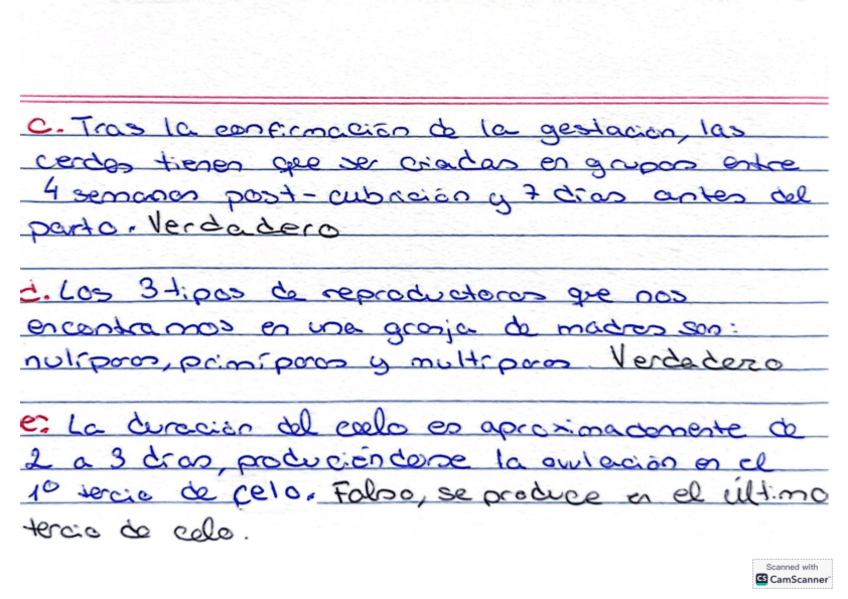 c. Tras la confirmación de la gestación, las
cerdas tienen que ser criadas en grupos entre
4 semanas post-cubrición y 7 días antes del
parto. Verdadero
d. Los 3 tipos de reproductoras que nos
encontramos en una granja de madres son:
nulíparas, primíparas y multíparas. Verdadero
e. La duración del celo es aproximadamente de
2 a 3 días, produciéndose la ovulación en el
1º tercio de celo. Falso, se produce en el último
tercio de celo.
Scanned with
CS CamScanner